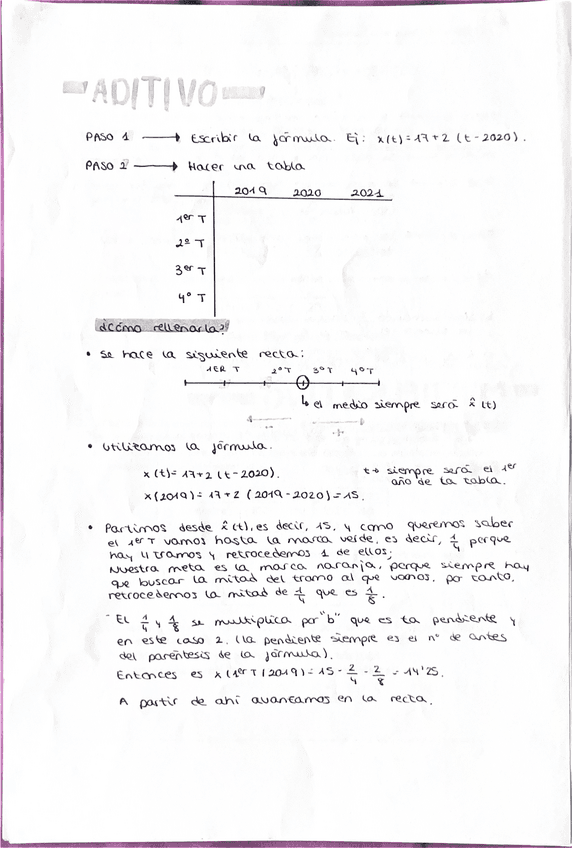 ADITIVO
PASO 1 → Escribir la fórmula. Ej: x(t)=17+2 (t-2020).
PASO 2 → Hacer una tabla
2019 2020 2021
1er T
2º T
3er T
4º T
¿Cómo rellenarla?
• Se hace la siguiente recta:
1ER T 2º T 3º T 4º T
↳ el medio siempre será x̂ (t)
- +
• Utilizamos la fórmula.
x(t)= 17+2 (t-2020). t→ siempre será el 1er
año de la tabla.
x(2019)= 17+2 (2019-2020)=15.
• Partimos desde x̂(t), es decir, 15, y como queremos saber
el 1er T vamos hasta la marca verde, es decir, 1/4 porque
hay 4 tramos y retrocedemos 1 de ellos;
Nuestra meta es la marca naranja, porque siempre hay
que buscar la mitad del tramo al que vamos, por tanto,
retrocedemos la mitad de 1/4 que es 1/8.
- El 1/4 y 1/8 se multiplica por "b" que es la pendiente y
en este caso 2. (la pendiente siempre es el nº de antes
del paréntesis de la fórmula).
Entonces es x(1er T/2019)= 15 - 2/4 - 2/8 = 14'25.
A partir de ahí avanzamos en la recta.